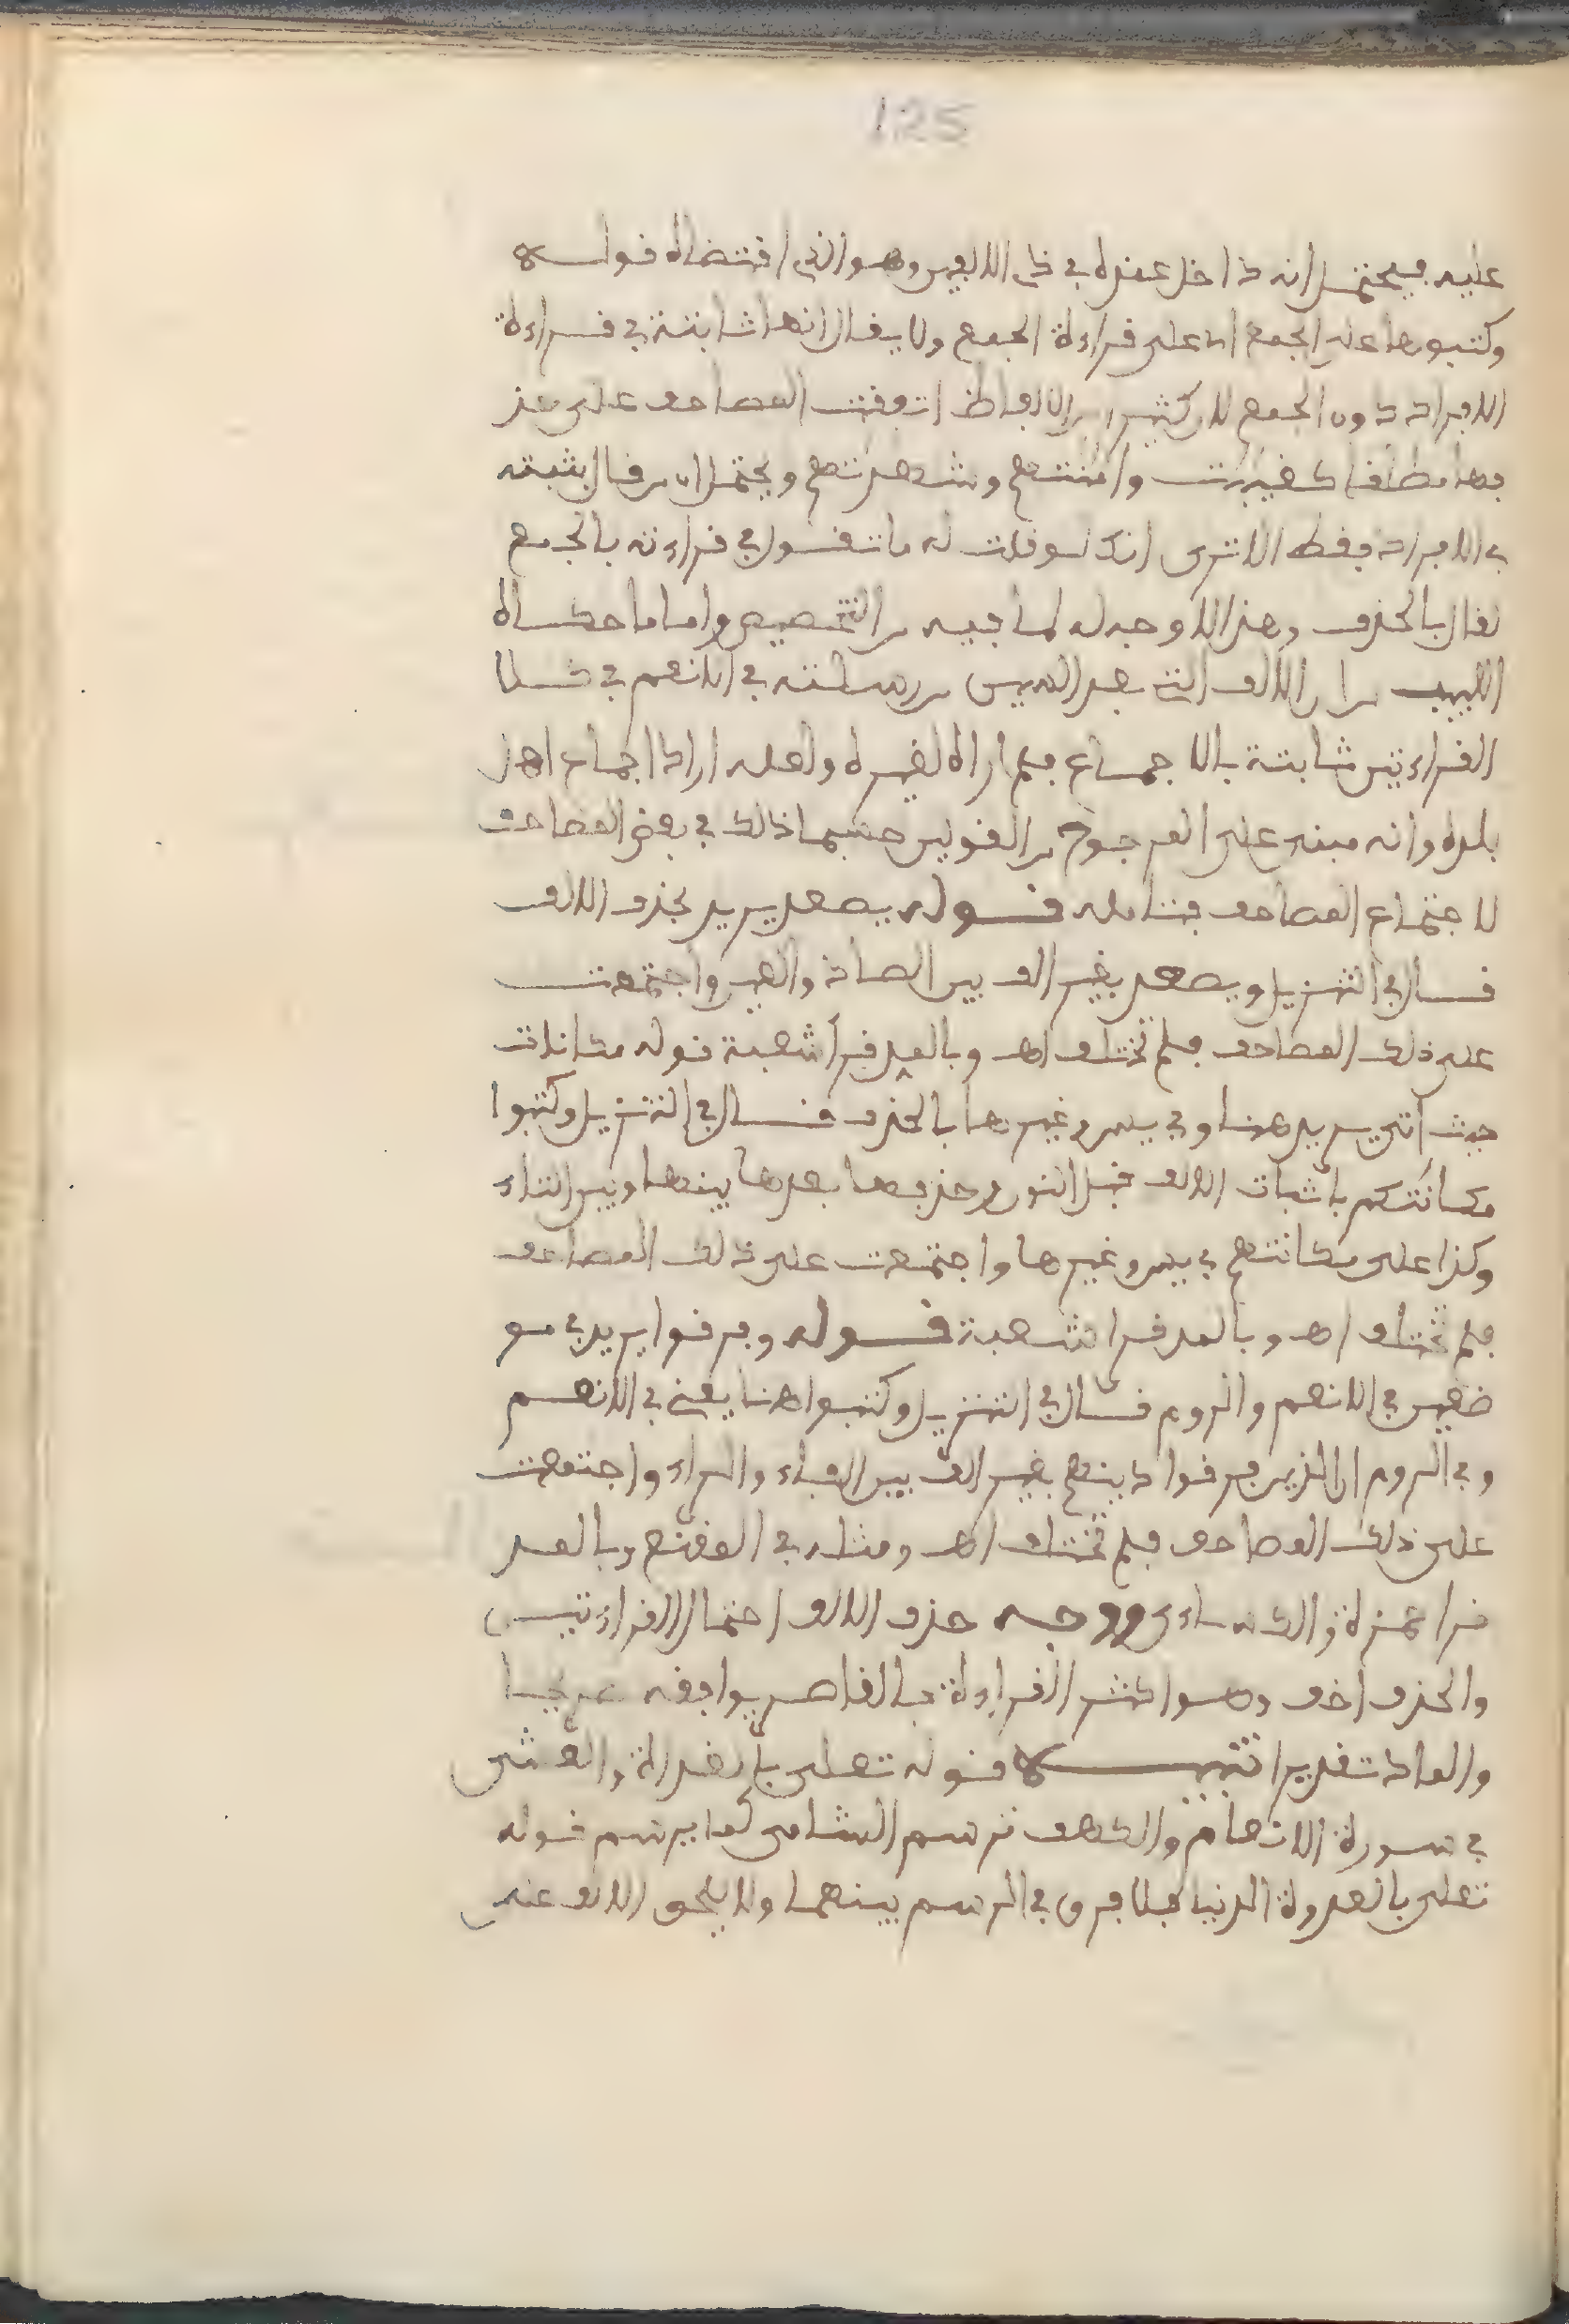 125
عليه فيحتمل انه داخل عنده في ذي الالفين وهو الذي اقتضاه قوله
وكتبوها على الجمع اي على قراءة الجمع ولا يقال انها ثابتة في قراءة
الافراد دون الجمع لان كثيرا من الالفاظ اتفقت المصاحف على حذ
فها مطلقا كفيبت وامنتهم وشهدتهم ويحتمل ان من قال بثبته
في الافراد فقط الا ترى انك لو قلت له ما تقول في قراءته بالجمع
لقال بالحذف وهذا لا وجه له لما فيه من التخصيص واما ما حكاه
اللبيب من ان الالف التي بعد السين من رسلته في الانعم في كلا
القراءتين ثابتة بالاجماع فلم اراه لغيره ولعله اراد اجماع اهل
بلده وانه مبني على المرجوح من القولين حسبما ذلك في بعض المصاحف
لاجتماع المصاحف فتامله قوله يصعد يريد بحذف الالف
قال في التنزيل ويصعد بغير الف بين الصاد والعين واجتمعت
على ذلك المصاحف فلم تختلف اهـ وبالمد قرأ شعبة قوله مكانات
حيث اتى يريد هنا وفي يس وغيرها بالحذف قال في التنزيل وكتبوا
مكانتكم باثبات الالف قبل النون وحذفها بعدها بينها وبين التاء
وكذا على مكانتهم في يس وغيرها واجتمعت على ذلك المصاحف
فلم تختلف اهـ وبالمد قرا شعبة قوله وفرقوا يريد في مو
ضعين في الانعم والروم قال في التنزيل وكتبوا هنا يعني في الانعم
وفي الروم ان الذين فرقوا دينهم بغير الف بين الفاء والراء واجتمعت
على ذلك المصاحف فلم تختلف اهـ ومثله في المقنع وبالمد
قرا حمزة والكساءي ووجه حذف الالف احتمال القراءتين
والحذف اخف وهو اكثر القراءة فالقاصر يوافقه صريحا
والماد تقديرا تنبيه قوله تعلى بالغداة والعشي
في سورة الانعام والكهف ترسم الشامي كما يرسم قوله
تعلى بالعدوة الدنيا فلا فرق في الرسم بينهما ولا يلحق الالف عند